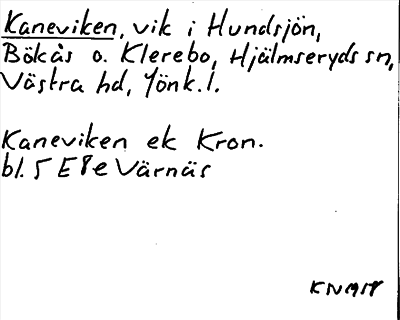 Kaneviken, vik i Hundsjön,
Bökås o. Klerebo, Hjälmseryds sn,
Västra hd, Jönk. l.
Kaneviken ek Kron.
bl. 5 E 8 e Värnäs